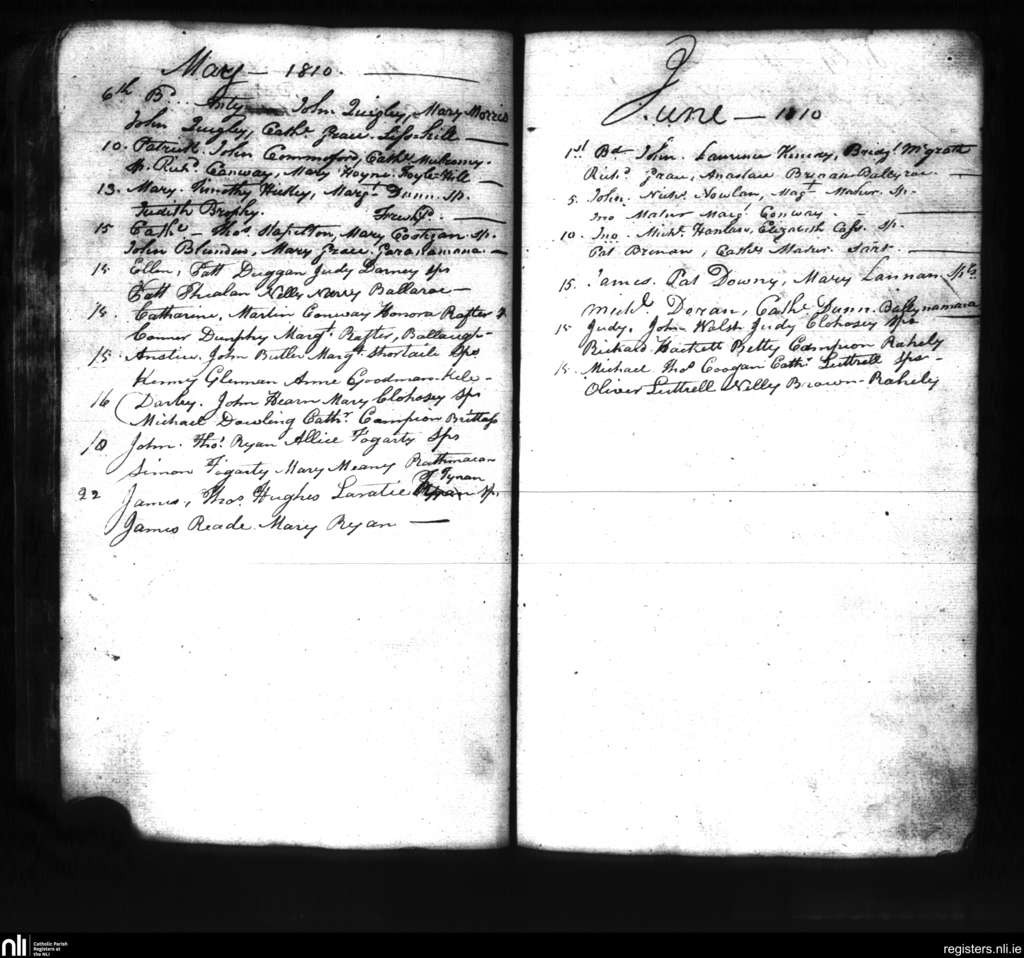 May — 1810.
6th B. Anty John Quigley, Mary Morris
John Quigley, Cathe. Grace. Lissohill
10. Patrick. John Commoford, Cathe.
Richd. Conway, Mary Hoyne. Foyle-Hill
13. Mary. Timothy Hickey, Margt. Dunn. Sp.
Judith Brophy. Freshfd.
15 Cathe — Thos. Stapelton, Mary Costigan Sp.
John Blundus, Mary Grace
15 Ellen, Patt Duggan Judy Darney Sps
Patt Phealan Nelly Neary Ballarae —
15. Catharine, Martin Conway Honora Rafter
Conner Dunphy Margt. Rafter, Ballaugh-
15. Anstice. John Butler Margt. Shortaile Sps
Kenny Glennan Anne Goodman. Kile-
16 Darley. John Hearn Mary Clohosey Sps
Michael Dowling Cathr. Campion Brittas
18 John. Thos. Ryan Allice Fogarty Sps
Simon Fogarty Mary Meany Rathmacan
Tynan
22 James, Thos. Hughes Laratie Sp.
James Reade. Mary Ryan —
June — 1810
1st Bd. John. Laurence Kenny, Bridgt. McGrath
Richd. Grace, Anastace Brenan Ballyrae.
5. John. Nichs. Nowlan, Magt. Maher. Sp.
Jno Maher Margt. Conway.
10. Jno. Michl. Hanlan, Elizabeth Sp.
Pat Brenan, Cathe. Maher.
15. James. Pat Downy, Mary Lannan. Sps
Michl. Doran, Cathe. Dunn. Ballynamara
15 Judy. John Walsh Judy Clohosey Sps
Richard Hackett Betty Campion Rahely
15. Michael Thos Coogan Cathr. Luttrell Sps -
Oliver Luttrell Nelly Brown - Rahely
nli
Catholic Parish
Registers at
the NLI
registers.nli.ie